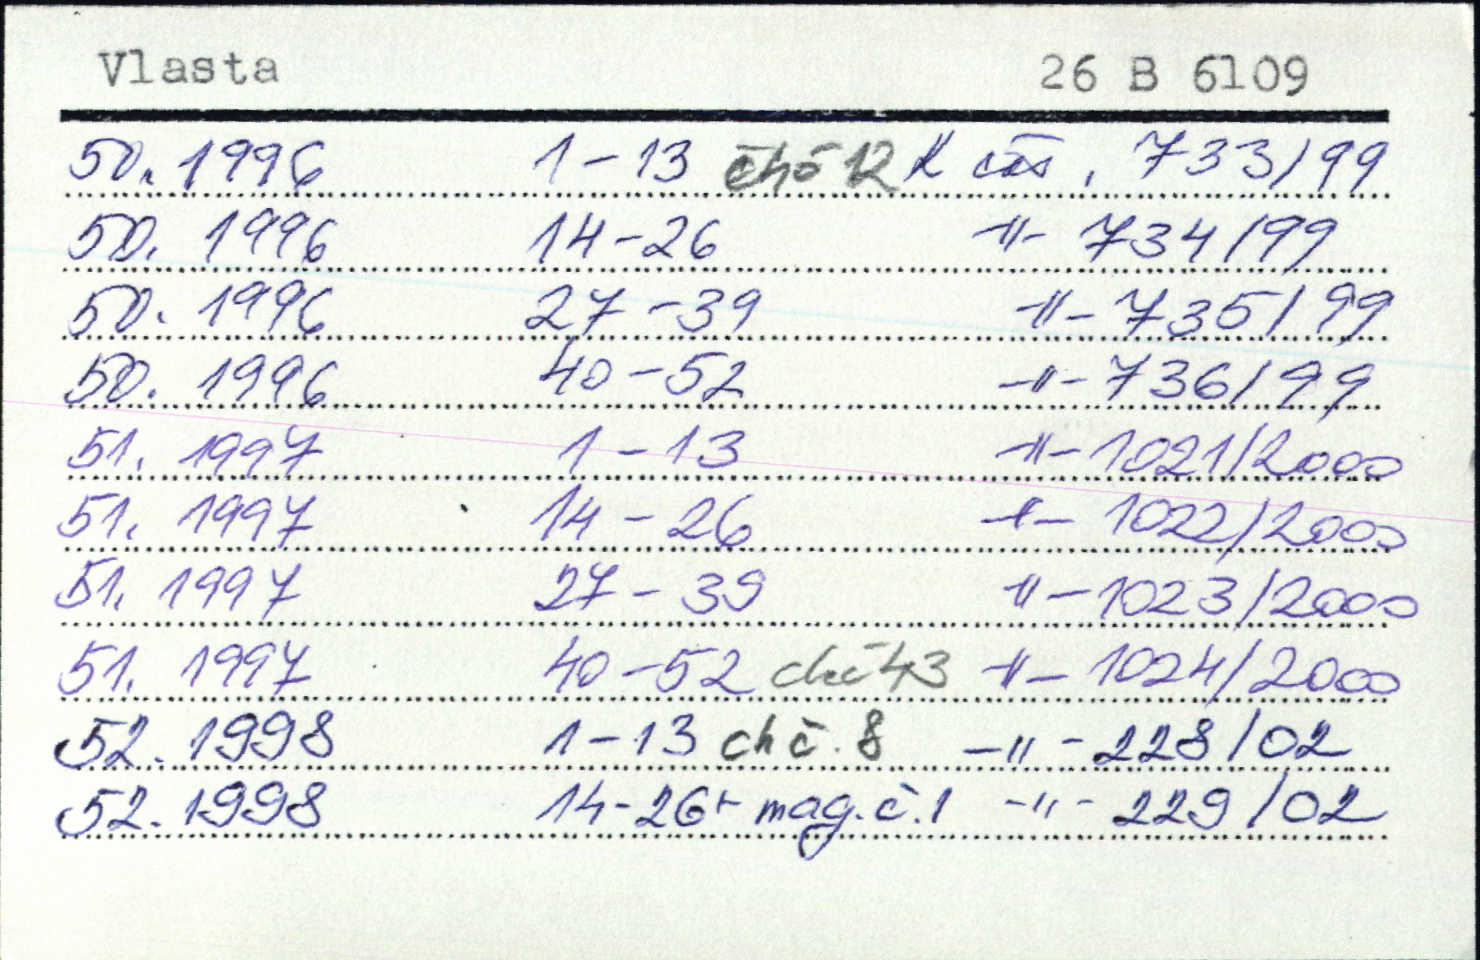 Vlasta 26 B 6109
50. 1996 1-13 chč 12 K čas. 733/99
50. 1996 14-26 -"- 734/99
50. 1996 27-39 -"- 735/99
50. 1996 40-52 -"- 736/99
51. 1997 1-13 -"- 1021/2000
51. 1997 14-26 -"- 1022/2000
51. 1997 27-39 -"- 1023/2000
51. 1997 40-52 chč 43 -"- 1024/2000
52. 1998 1-13 chč. 8 -"- 228/02
52. 1998 14-26+ mag. č. 1 -"- 229/02